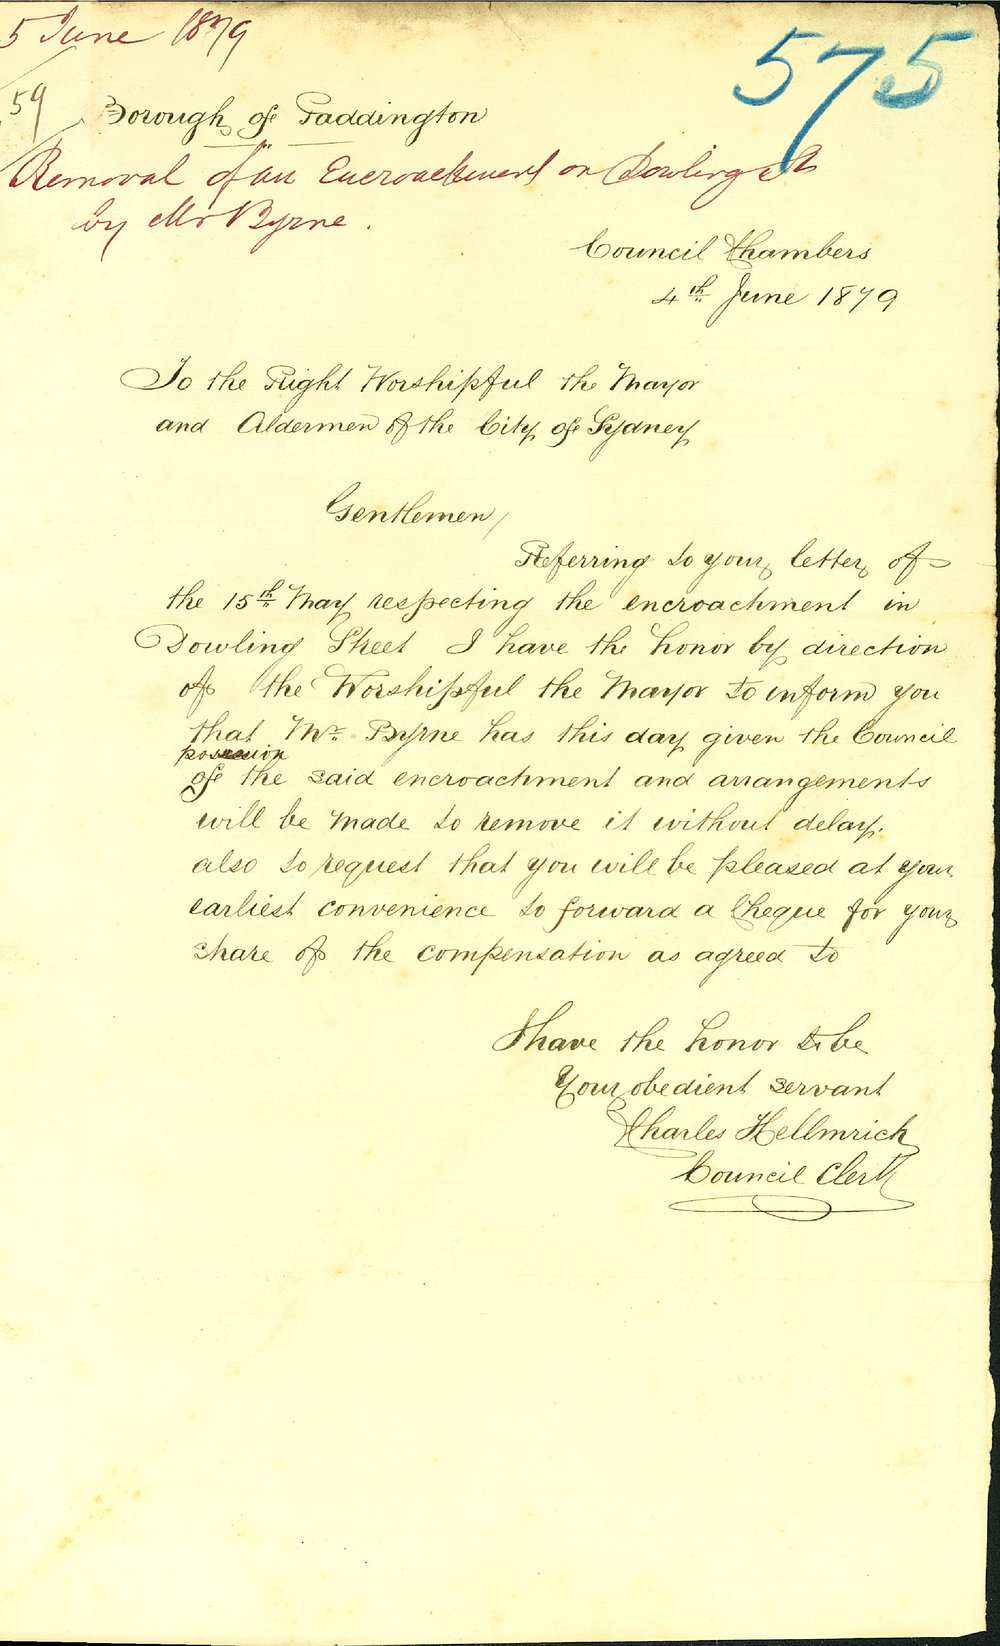 5 June 1879
575
59
Borough of Paddington
Removal of an Encroachment on Dowling St
by Mr Byrne.
Council Chambers
4th June 1879
To the Right Worshipful the Mayor
and Aldermen of the City of Sydney
Gentlemen,
Referring to your letter of
the 15th May respecting the encroachment in
Dowling Street I have the honor by direction
of the Worshipful the Mayor to inform you
that Mr. Byrne has this day given the Council
possession
of the said encroachment and arrangements
will be made to remove it without delay.
also to request that you will be pleased at your
earliest convenience to forward a Cheque for your
share of the compensation as agreed to
I have the honor to be
Your obedient servant
Charles Hellmrich
Council Clerk